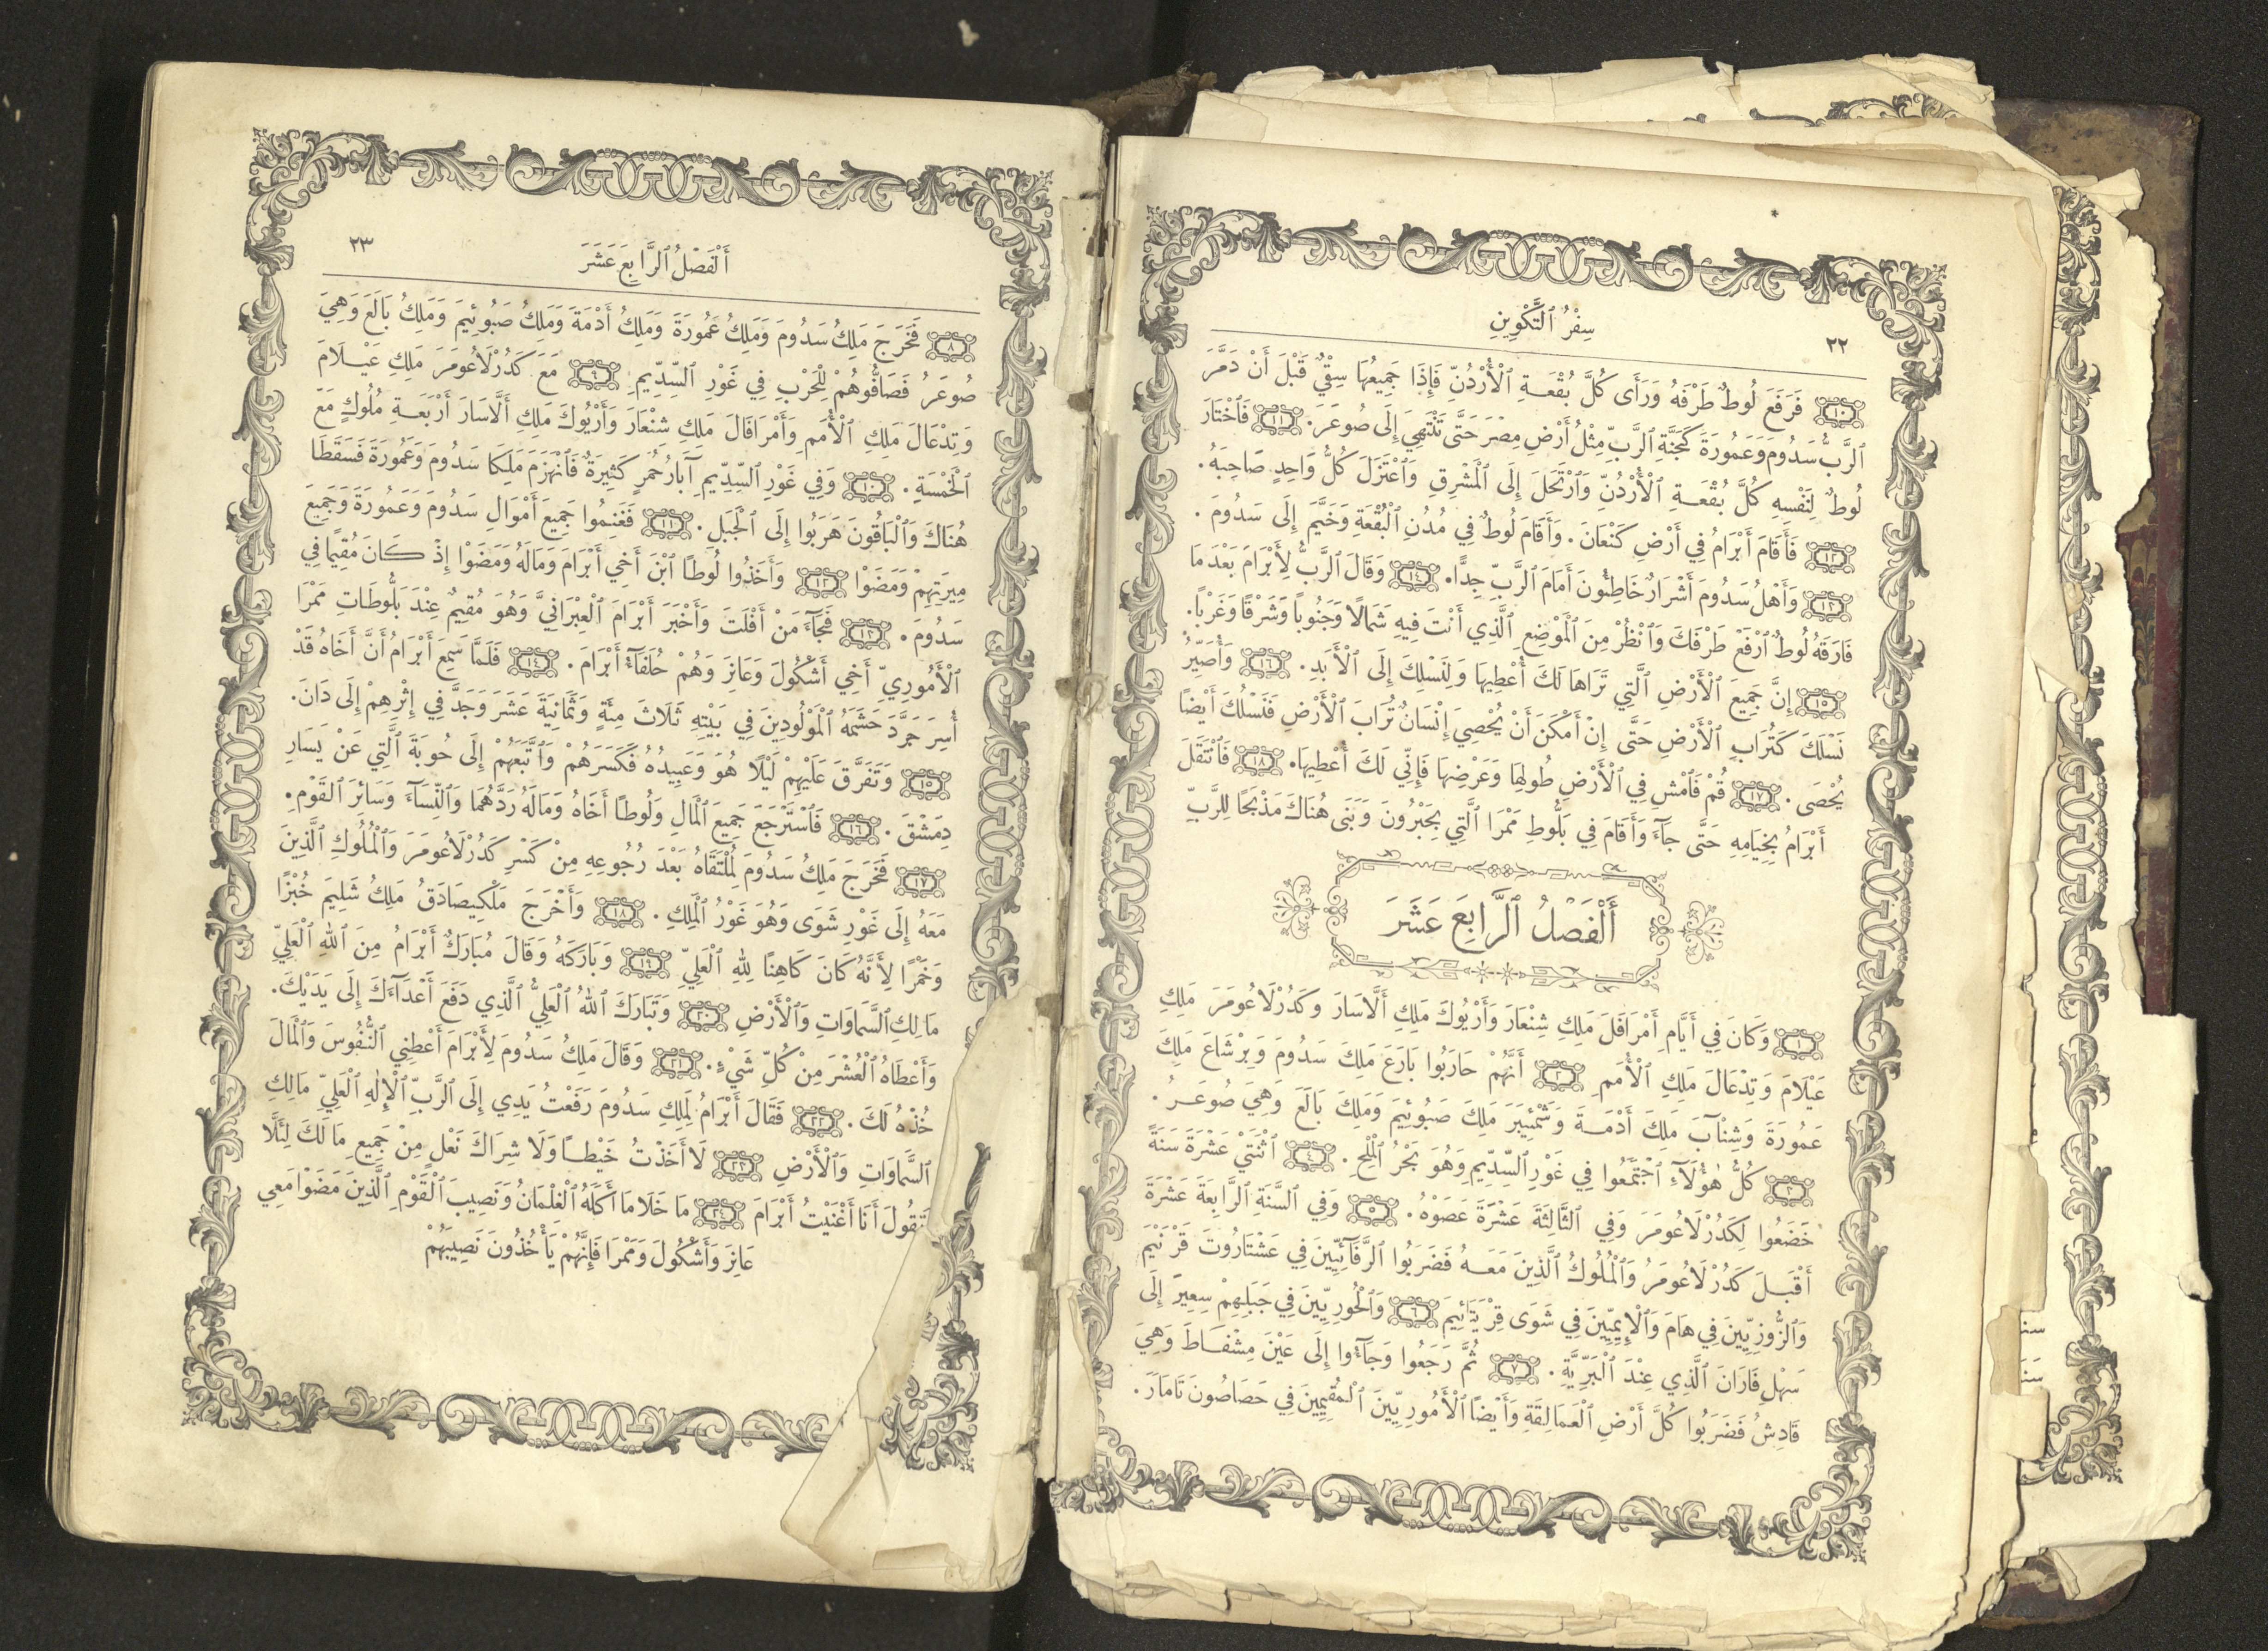 ٢٢
سِفْرُ ٱلتَّكْوِينِ
(١٠) فَرَفَعَ لُوطٌ طَرْفَهُ وَرَأَى كُلَّ بُقْعَةِ ٱلْأُرْدُنِّ فَإِذَا جَمِيعُهَا سِقْيٌ قَبْلَ أَنْ دَمَّرَ
ٱلرَّبُّ سَدُومَ وَعَمُورَةَ كَجَنَّةِ ٱلرَّبِّ مِثْلُ أَرْضِ مِصْرَ حَتَّى تَنْتَهِيَ إِلَى صُوعَرَ. (١١) فَٱخْتَارَ
لُوطٌ لِنَفْسِهِ كُلَّ بُقْعَةِ ٱلْأُرْدُنِّ وَٱرْتَحَلَ إِلَى ٱلْمَشْرِقِ وَٱعْتَزَلَ كُلُّ وَاحِدٍ صَاحِبَهُ.
(١٢) فَأَقَامَ أَبْرَامُ فِي أَرْضِ كَنْعَانَ. وَأَقَامَ لُوطٌ فِي مُدُنِ ٱلْبُقْعَةِ وَخَيَّمَ إِلَى سَدُومَ.
(١٣) وَأَهْلُ سَدُومَ أَشْرَارٌ خَاطِئُونَ أَمَامَ ٱلرَّبِّ جِدًّا. (١٤) وَقَالَ ٱلرَّبُّ لِأَبْرَامَ بَعْدَ مَا
فَارَقَهُ لُوطٌ ٱرْفَعْ طَرْفَكَ وَٱنْظُرْ مِنَ ٱلْمَوْضِعِ ٱلَّذِي أَنْتَ فِيهِ شَمَالًا وَجَنُوبًا وَشَرْقًا وَغَرْبًا.
(١٥) إِنَّ جَمِيعَ ٱلْأَرْضِ ٱلَّتِي تَرَاهَا لَكَ أُعْطِيهَا وَلِنَسْلِكَ إِلَى ٱلْأَبَدِ. (١٦) وَأُصَيِّرُ
نَسْلَكَ كَتُرَابِ ٱلْأَرْضِ حَتَّى إِنْ أَمْكَنَ أَنْ يُحْصِيَ إِنْسَانٌ تُرَابَ ٱلْأَرْضِ فَنَسْلُكَ أَيْضًا
يُحْصَى. (١٧) قُمْ فَٱمْشِ فِي ٱلْأَرْضِ طُولِهَا وَعَرْضِهَا فَإِنِّي لَكَ أُعْطِيهَا. (١٨) فَٱنْتَقَلَ
أَبْرَامُ بِخِيَامِهِ حَتَّى جَآءَ وَأَقَامَ فِي بَلُّوطِ مَمْرَا ٱلَّتِي بِحَبْرُونَ وَبَنَى هُنَاكَ مَذْبَحًا لِلرَّبِّ
أَلْفَصْلُ ٱلرَّابِعَ عَشَرَ
(١) وَكَانَ فِي أَيَّامِ أَمْرَافَلَ مَلِكِ شِنْعَارَ وَأَرْيُوكَ مَلِكِ أَلَّاسَارَ وَكَدُرْلَاعُومَرَ مَلِكِ
عَيْلَامَ وَتِدْعَالَ مَلِكِ ٱلْأُمَمِ (٢) أَنَّهُمْ حَارَبُوا بَارَعَ مَلِكَ سَدُومَ وَبِرْشَاعَ مَلِكَ
عَمُورَةَ وَشِنْآبَ مَلِكَ أَدْمَةَ وَشَمْئِيبَرَ مَلِكَ صَبُوئِيمَ وَمَلِكَ بَالَعَ وَهِيَ صُوعَرُ.
(٣) كُلُّ هٰؤُلَآءِ ٱجْتَمَعُوا فِي غَوْرِ ٱلسِّدِّيمِ وَهُوَ بَحْرُ ٱلْمِلْحِ. (٤) ٱثْنَتَيْ عَشْرَةَ سَنَةً
خَضَعُوا لِكَدُرْلَاعُومَرَ وَفِي ٱلثَّالِثَةَ عَشْرَةَ عَصَوْهُ. (٥) وَفِي ٱلسَّنَةِ ٱلرَّابِعَةَ عَشْرَةَ
أَقْبَلَ كَدُرْلَاعُومَرُ وَٱلْمُلُوكُ ٱلَّذِينَ مَعَهُ فَضَرَبُوا ٱلرَّفَآئِيِّينَ فِي عَشْتَارُوتَ قَرْنَيْمَ
وَٱلزُّوزِيِّينَ فِي هَامَ وَٱلْإِيمِيِّينَ فِي شَوَى قِرْيَتَائِيمَ (٦) وَٱلْحُورِيِّينَ فِي جَبَلِهِمْ سِعِيرَ إِلَى
سَهْلِ فَارَانَ ٱلَّذِي عِنْدَ ٱلْبَرِّيَّةِ. (٧) ثُمَّ رَجَعُوا وَجَآءُوا إِلَى عَيْنَ مِشْفَاطَ وَهِيَ
قَادِشُ فَضَرَبُوا كُلَّ أَرْضِ ٱلْعَمَالِقَةِ وَأَيْضًا ٱلْأَمُورِيِّينَ ٱلْمُقِيمِينَ فِي حَصَاصُونَ تَامَارَ.
أَلْفَصْلُ ٱلرَّابِعَ عَشَرَ
٢٣
(٨) فَخَرَجَ مَلِكُ سَدُومَ وَمَلِكُ عَمُورَةَ وَمَلِكُ أَدْمَةَ وَمَلِكُ صَبُوئِيمَ وَمَلِكُ بَالَعَ وَهِيَ
صُوعَرُ فَصَافُّوهُمْ لِلْحَرْبِ فِي غَوْرِ ٱلسِّدِّيمِ (٩) مَعَ كَدُرْلَاعُومَرَ مَلِكِ عَيْلَامَ
وَتِدْعَالَ مَلِكِ ٱلْأُمَمِ وَأَمْرَافَلَ مَلِكِ شِنْعَارَ وَأَرْيُوكَ مَلِكِ أَلَّاسَارَ أَرْبَعَةِ مُلُوكٍ مَعَ
ٱلْخَمْسَةِ. (١٠) وَفِي غَوْرِ ٱلسِّدِّيمِ آبَارُ حُمَرٍ كَثِيرَةٌ فَٱنْهَزَمَ مَلِكَا سَدُومَ وَعَمُورَةَ فَسَقَطَا
هُنَاكَ وَٱلْبَاقُونَ هَرَبُوا إِلَى ٱلْجَبَلِ. (١١) فَغَنِمُوا جَمِيعَ أَمْوَالِ سَدُومَ وَعَمُورَةَ وَجَمِيعَ
مِيرَتِهِمْ وَمَضَوْا (١٢) وَأَخَذُوا لُوطًا ٱبْنَ أَخِي أَبْرَامَ وَمَالَهُ وَمَضَوْا إِذْ كَانَ مُقِيمًا فِي
سَدُومَ. (١٣) فَجَآءَ مَنْ أَفْلَتَ وَأَخْبَرَ أَبْرَامَ ٱلْعِبْرَانِيَّ وَهُوَ مُقِيمٌ عِنْدَ بَلُّوطَاتِ مَمْرَا
ٱلْأَمُورِيِّ أَخِي أَشْكُولَ وَعَانِرَ وَهُمْ حُلَفَآءُ أَبْرَامَ. (١٤) فَلَمَّا سَمِعَ أَبْرَامُ أَنَّ أَخَاهُ قَدْ
أُسِرَ جَرَّدَ حَشَمَهُ ٱلْمَوْلُودِينَ فِي بَيْتِهِ ثَلَاثَ مِئَةٍ وَثَمَانِيَةَ عَشَرَ وَجَدَّ فِي إِثْرِهِمْ إِلَى دَانَ.
(١٥) وَتَفَرَّقَ عَلَيْهِمْ لَيْلًا هُوَ وَعَبِيدُهُ فَكَسَرَهُمْ وَٱتَّبَعَهُمْ إِلَى حُوبَةَ ٱلَّتِي عَنْ يَسَارِ
دِمَشْقَ. (١٦) فَٱسْتَرْجَعَ جَمِيعَ ٱلْمَالِ وَلُوطًا أَخَاهُ وَمَالَهُ رَدَّهُمَا وَٱلنِّسَآءَ وَسَائِرَ ٱلْقَوْمِ.
(١٧) فَخَرَجَ مَلِكُ سَدُومَ لِمُلْتَقَاهُ بَعْدَ رُجُوعِهِ مِنْ كَسْرِ كَدُرْلَاعُومَرَ وَٱلْمُلُوكِ ٱلَّذِينَ
مَعَهُ إِلَى غَوْرِ شَوَى وَهُوَ غَوْرُ ٱلْمَلِكِ. (١٨) وَأَخْرَجَ مَلْكِيصَادَقُ مَلِكُ شَلِيمَ خُبْزًا
وَخَمْرًا لِأَنَّهُ كَانَ كَاهِنًا لِلهِ ٱلْعَلِيِّ (١٩) وَبَارَكَهُ وَقَالَ مُبَارَكٌ أَبْرَامُ مِنَ ٱللهِ ٱلْعَلِيِّ
مَالِكِ ٱلسَّمَاوَاتِ وَٱلْأَرْضِ (٢٠) وَتَبَارَكَ ٱللهُ ٱلْعَلِيُّ ٱلَّذِي دَفَعَ أَعْدَآءَكَ إِلَى يَدَيْكَ.
وَأَعْطَاهُ ٱلْعُشْرَ مِنْ كُلِّ شَيْءٍ. (٢١) وَقَالَ مَلِكُ سَدُومَ لِأَبْرَامَ أَعْطِنِي ٱلنُّفُوسَ وَٱلْمَالَ
خُذْهُ لَكَ. (٢٢) فَقَالَ أَبْرَامُ لِمَلِكِ سَدُومَ رَفَعْتُ يَدِي إِلَى ٱلرَّبِّ ٱلْإِلٰهِ ٱلْعَلِيِّ مَالِكِ
ٱلسَّمَاوَاتِ وَٱلْأَرْضِ (٢٣) لَا أَخَذْتُ خَيْطًا وَلَا شِرَاكَ نَعْلٍ مِنْ جَمِيعِ مَا لَكَ لِئَلَّا
تَقُولَ أَنَا أَغْنَيْتُ أَبْرَامَ (٢٤) مَا خَلَا مَا أَكَلَهُ ٱلْغِلْمَانُ وَنَصِيبَ ٱلْقَوْمِ ٱلَّذِينَ مَضَوْا مَعِي
عَانِرَ وَأَشْكُولَ وَمَمْرَا فَإِنَّهُمْ يَأْخُذُونَ نَصِيبَهُمْ